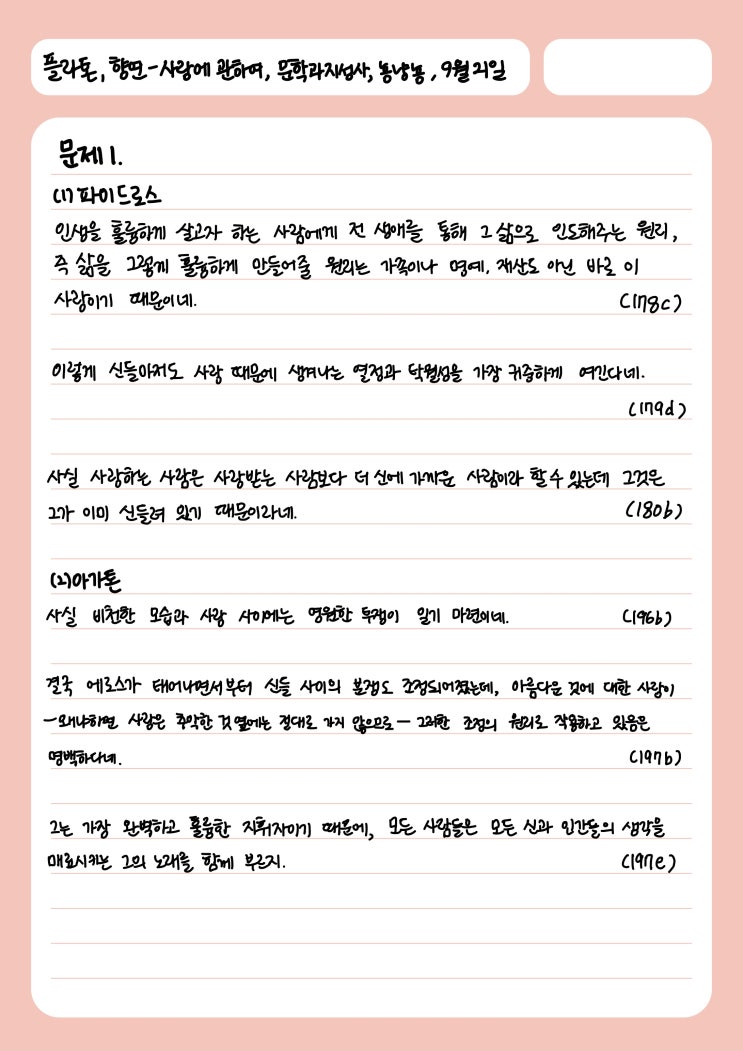 플라톤, 향연-사랑에 관하여, 문학과지성사, 9월 21일
문제 1.
(1) 파이드로스
인생을 훌륭하게 살고자 하는 사람에게 전 생애를 통해 그 삶으로 인도해주는 원리,
즉 삶을 그렇게 훌륭하게 만들어줄 원리는 가족이나 명예, 재산도 아닌 바로 이
사랑이기 때문이네. (178c)
이렇게 신들마저도 사랑 때문에 생겨나는 열정과 탁월성을 가장 귀중하게 여긴다네.
(179d)
사실 사랑하는 사람은 사랑받는 사람보다 더 신에 가까운 사람이라 할 수 있는데 그것은
그가 이미 신들려 있기 때문이라네. (180b)
(2) 아가톤
사실 비천한 모습과 사랑 사이에는 영원한 투쟁이 일기 마련이네. (196b)
결국 에로스가 태어나면서부터 신들 사이의 분쟁도 조정되어졌는데, 아름다운 것에 대한 사랑이
-왜냐하면 사랑은 추악한 것 옆에는 절대로 가지 않으므로- 그러한 조정의 원리로 작용하고 있음은
명백하다네. (197b)
그는 가장 완벽하고 훌륭한 지휘자이기 때문에, 모든 사람들은 모든 신과 인간들의 생각을
매료시키는 그의 노래를 함께 부르지. (197e)